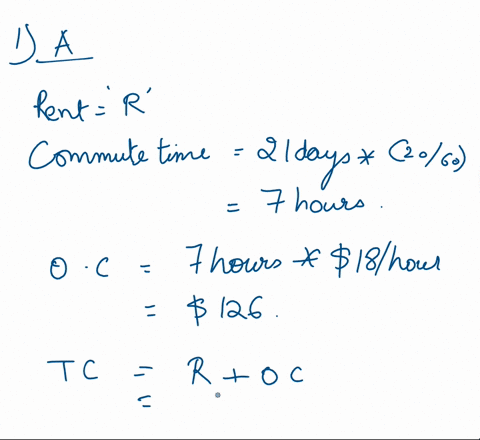 1) A
Rent = 'R'
Commute time = 21days * (20/60)
= 7 hours.
O.C = 7 hours * $18/hour
= $126.
TC = R + OC
=